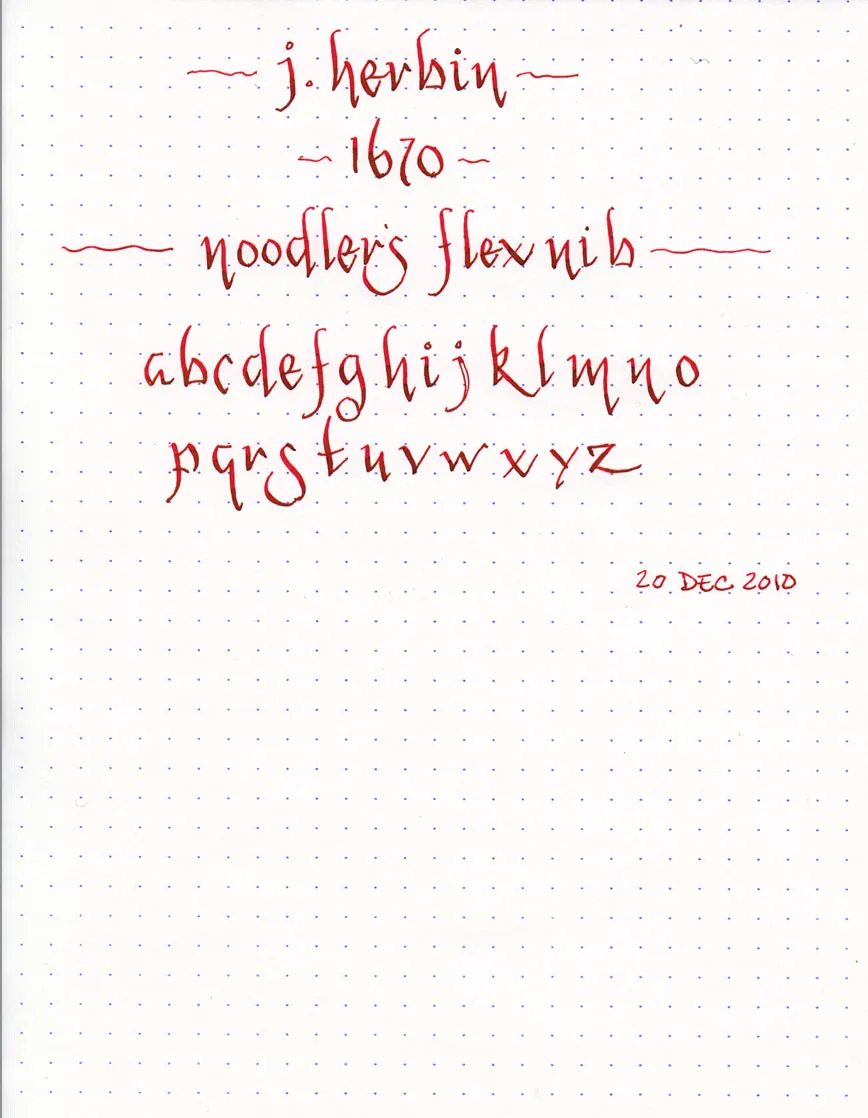 ~ j. herbin ~
~ 1670 ~
~ noodler's flex nib ~
a b c d e f g h i j k l m n o
p q r s t u v w x y z
20 DEC 2010